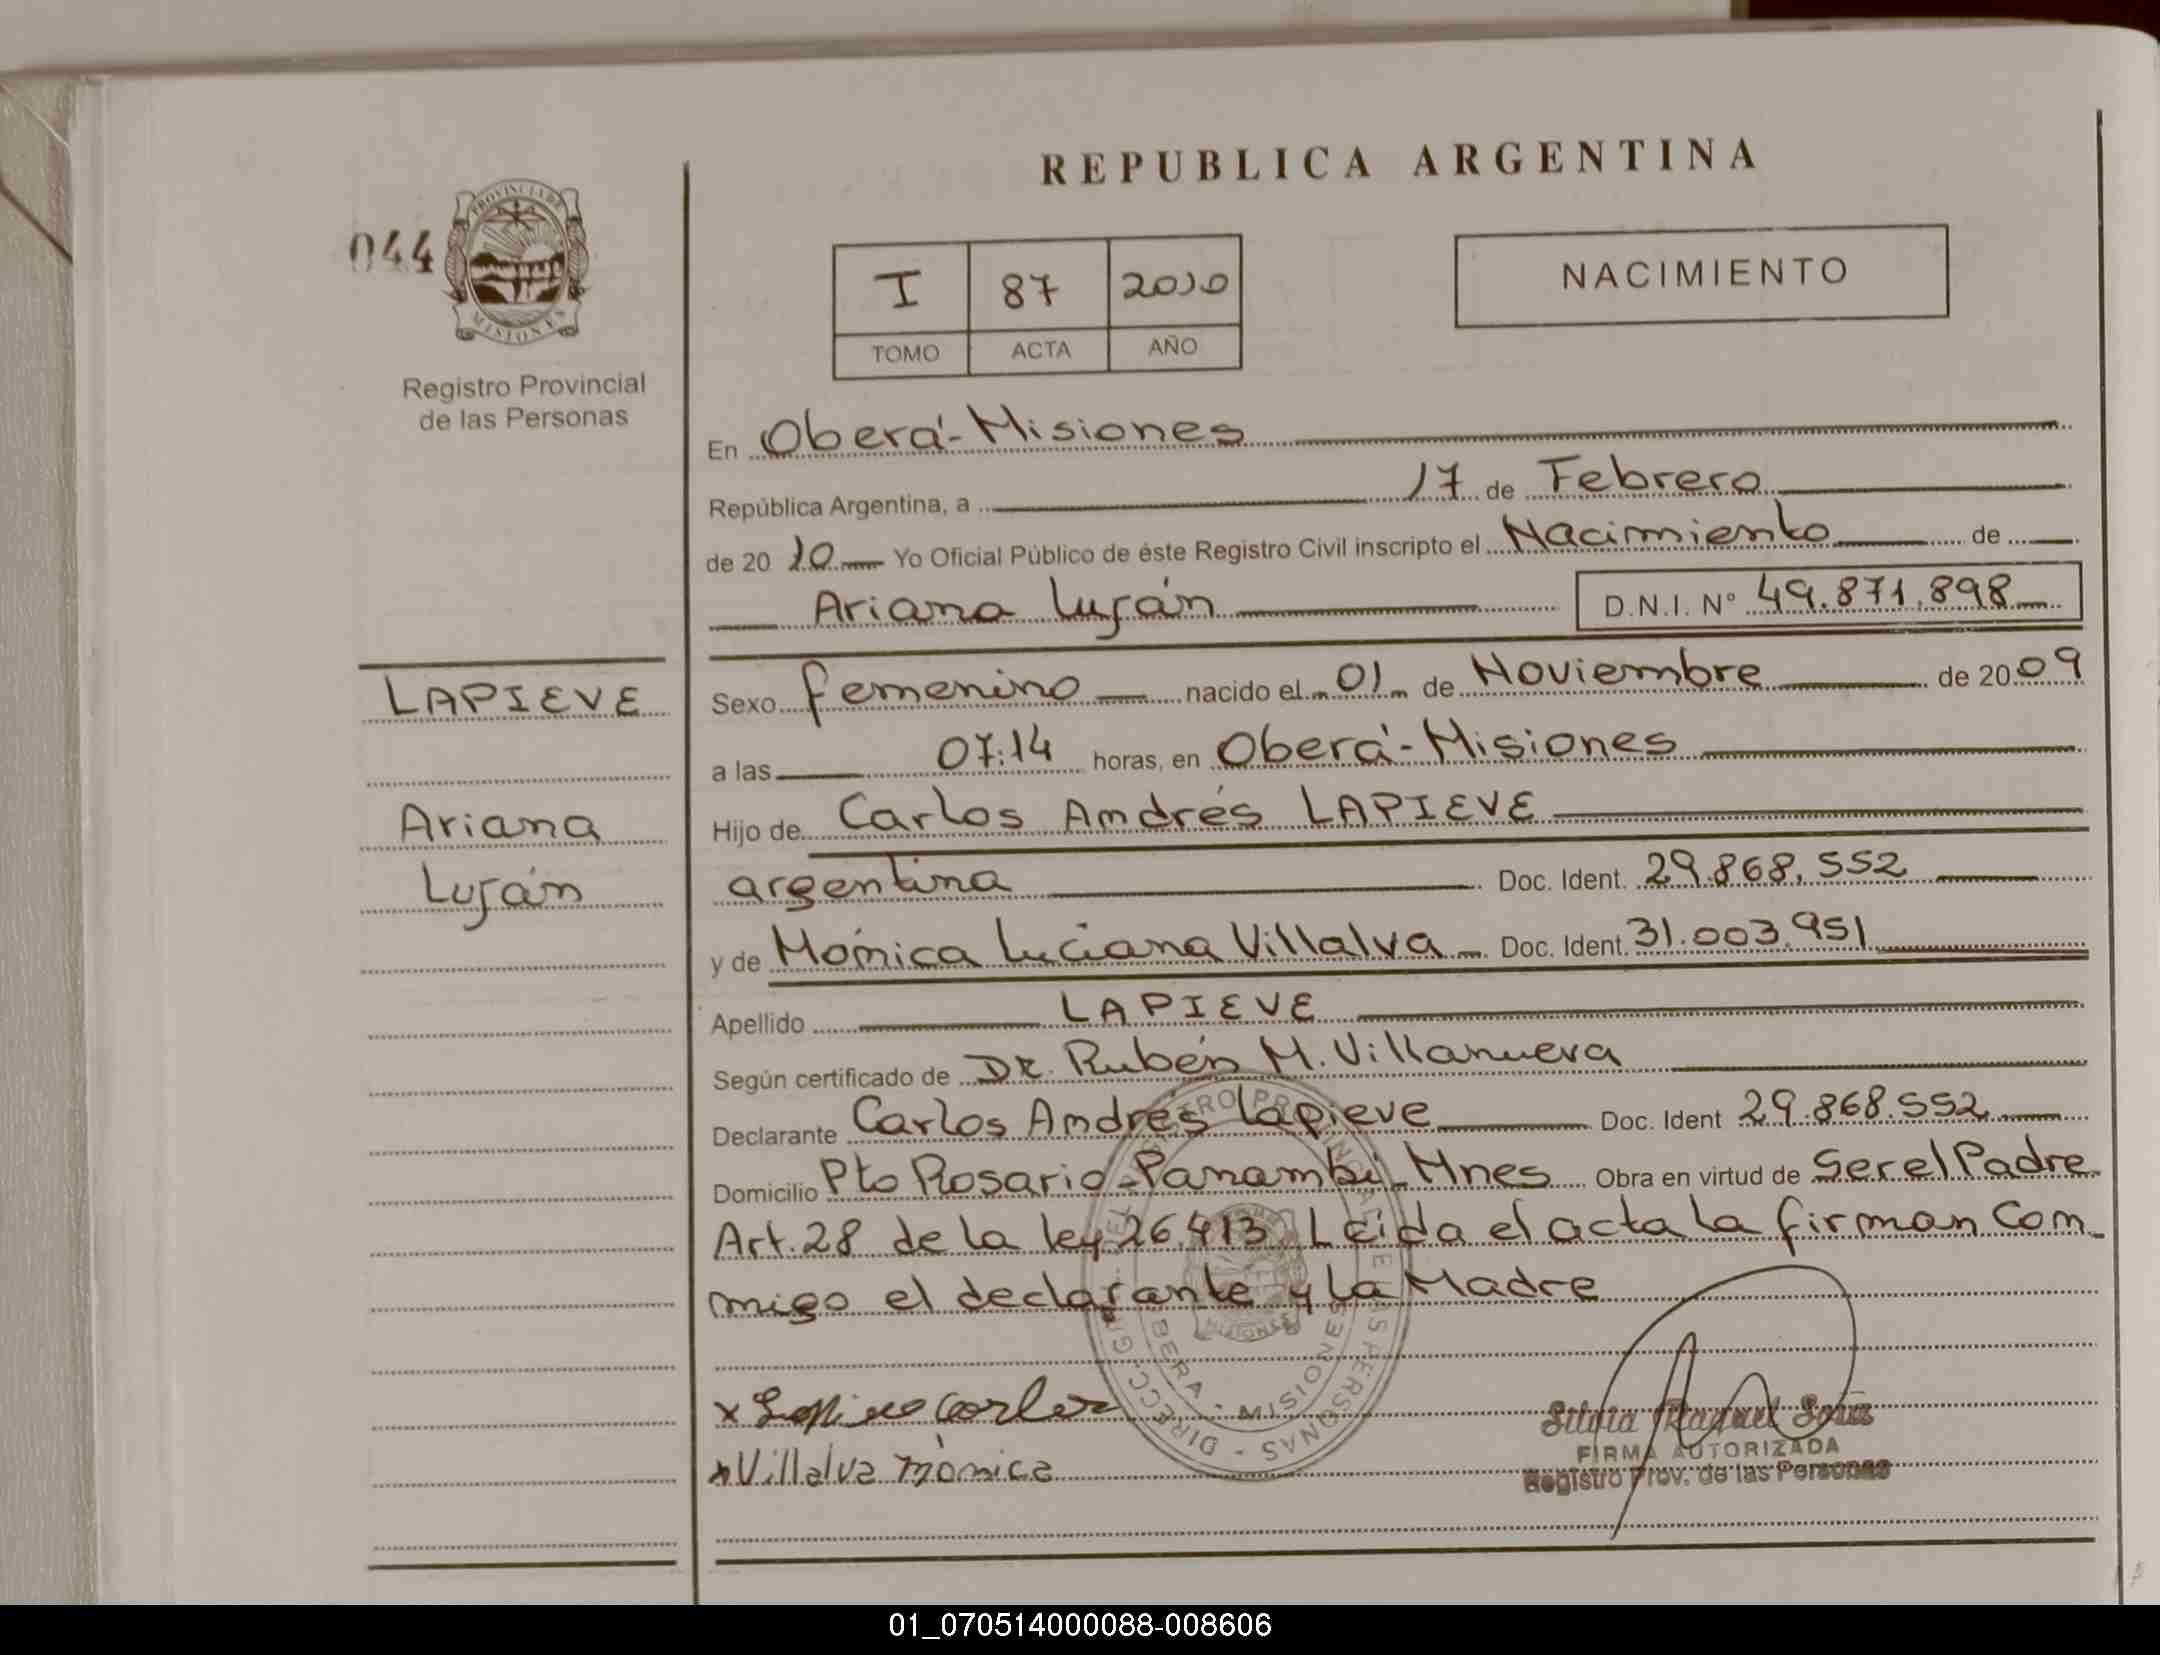 REPUBLICA ARGENTINA
044
PROVINCIA DE
MISIONES
Registro Provincial
de las Personas
I 87 2010
TOMO ACTA AÑO
NACIMIENTO
En Oberá - Misiones
República Argentina, a 17 de Febrero
de 20 10 Yo Oficial Público de éste Registro Civil inscripto el Nacimiento de
Ariana Luján D.N.I. Nº 49.871.898
LAPIEVE
Ariana
Luján
Sexo femenino nacido el 01 de Noviembre de 20 09
a las 07:14 horas, en Oberá - Misiones
Hijo de Carlos Andrés LAPIEVE
argentina Doc. Ident. 29.868.552
y de Mónica Luciana Villalva Doc. Ident. 31.003.951
Apellido LAPIEVE
Según certificado de DR. Rubén M. Villanueva
Declarante Carlos Andrés Lapieve Doc. Ident 29.868.552
Domicilio Pto Rosario - Panambí - Mnes Obra en virtud de Ser el Padre
Art. 28 de la ley 26.413 Leida el acta la firman Con-
migo el declarante y la Madre
x Lapieve Carlos
x Villalva Mónica
Silvia Raquel
FIRMA AUTORIZADA
Registro Prov. de las Personas
01_070514000088-008606